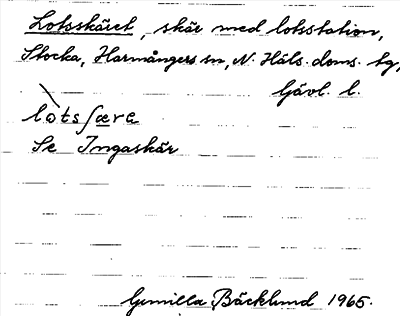 Lotsskäret, skär med lotsstation,
Stocka, Harmångers sn, N. Häls. doms. tg,
Gävl. l.
lòtsʃære
Se Ingaskär
Gunilla Bäcklund 1965.